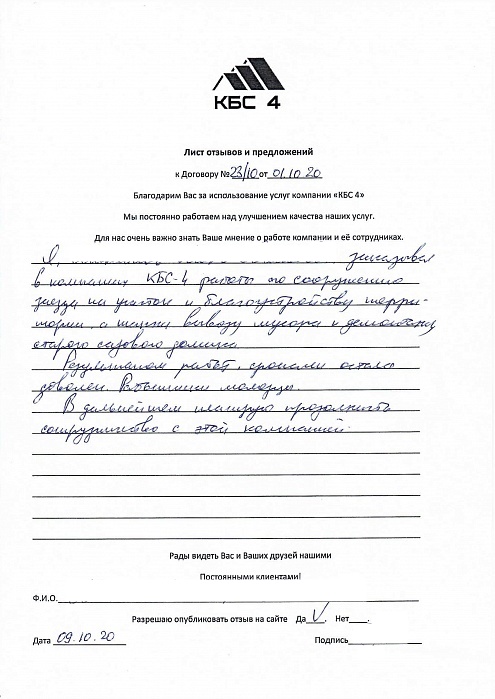 КБС 4
Лист отзывов и предложений
к Договору №23/10 от 01.10 20
Благодарим Вас за использование услуг компании «КБС 4»
Мы постоянно работаем над улучшением качества наших услуг.
Для нас очень важно знать Ваше мнение о работе компании и её сотрудниках.
Я, заказывал
в компании КБС-4 работы по сооружению
заезда на участок и благоустройству терри-
тории, а также вывозу мусора и демонтажу
старого садового домика
Результатом работ, сроками остался
доволен. Работники молодцы.
В дальнейшем планирую продолжить
сотрудничество с этой компанией.
Рады видеть Вас и Ваших друзей нашими
Постоянными клиентами!
Ф.И.О.
Разрешаю опубликовать отзыв на сайте Да V. Нет .
Дата 09.10.20 Подпись